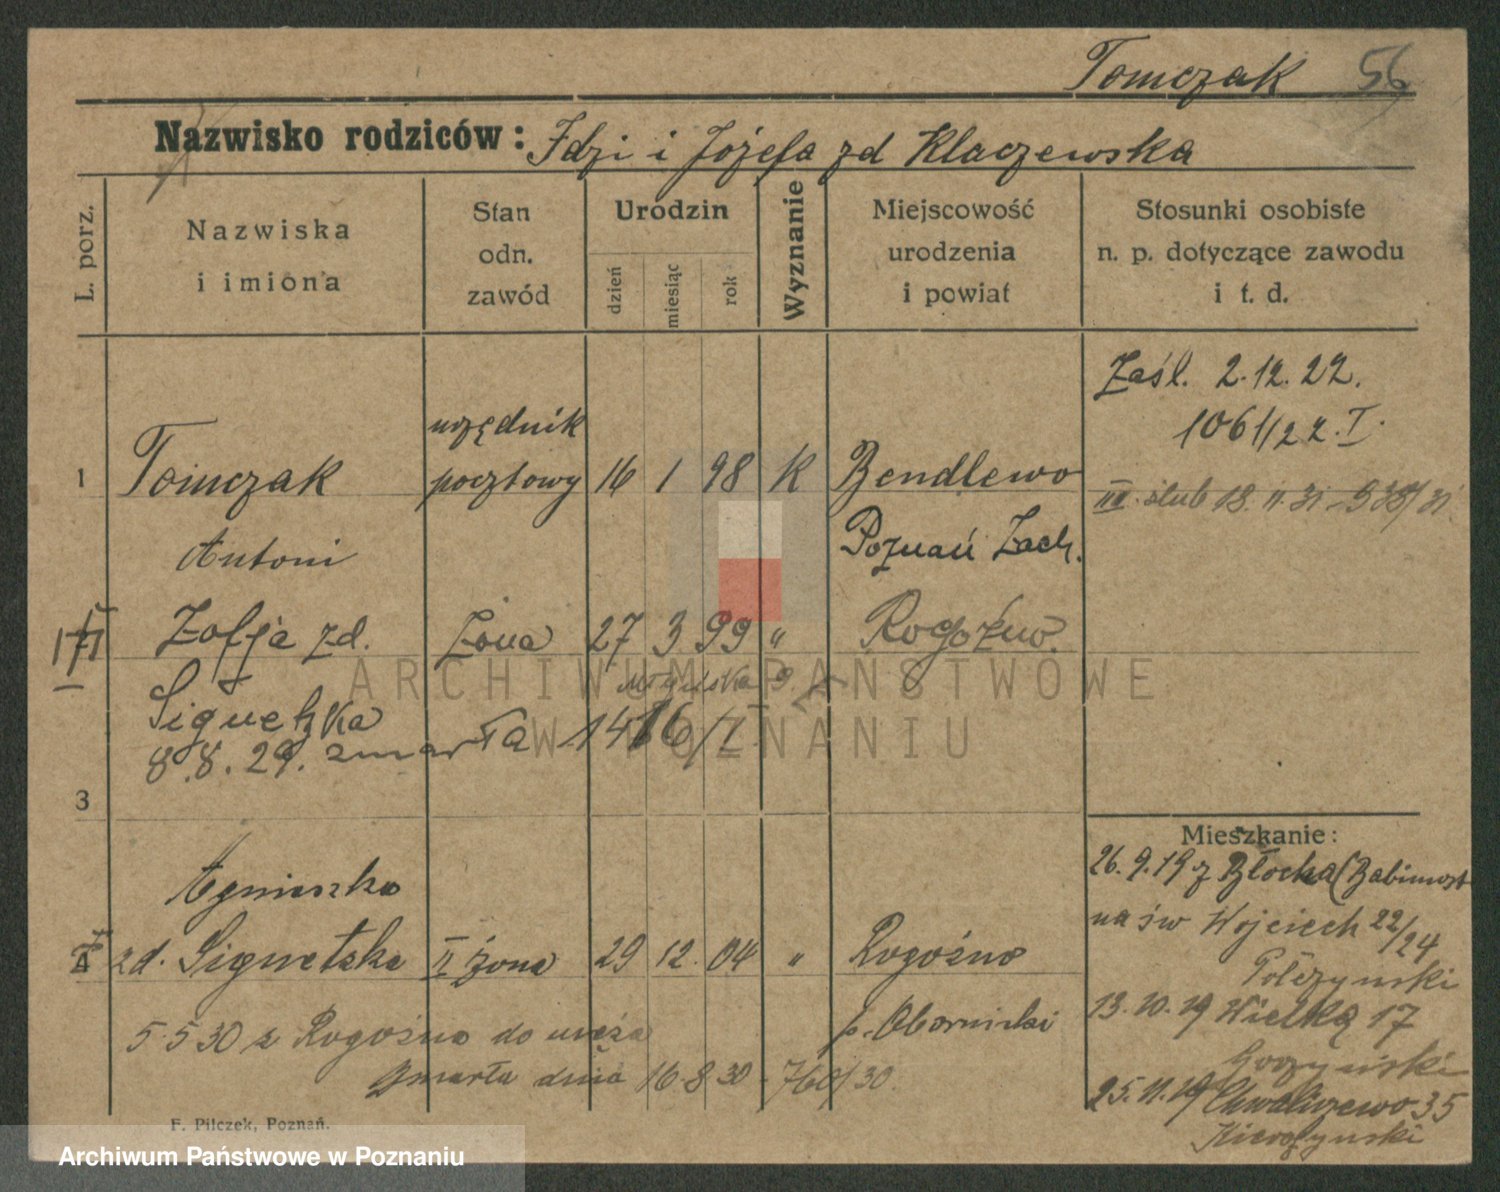 Tomczak 56
Nazwisko rodziców: Idzi i Józefa zd Klaczewska
L. porz.
Nazwiska i imiona
Stan odn. zawód
Urodzin
dzień miesiąc rok
Wyznanie
Miejscowość urodzenia i powiat
Stosunki osobiste n. p. dotyczące zawodu i t. d.
Zaśl. 2.12.22.
1061/22.I.
urzędnik
1 Tomczak pocztowy 16 1 98 K Bendlewo
III. ślub 18.11.31
Antoni Poznań Zach.
Zofja zd. żona 27 3 99 " Rogoźno.
ARCHIWUM PAŃSTWOWE
W POZNANIU
8.8.29. zmarła 1416/I
3
Mieszkanie:
26.9.19 z Błocka (Babimost
Agnieszka
na św Wojciech 22/24
4 zd. Signetzka II żona 29 12. 04 " Rogoźno
p. Obornicki
13.10.19 Wielką 17
5.5 30 z Rogoźna do męża
Zmarła dnia 16.8 30 - 760/30.
25.11.19 Chwaliszewo 35
F. Pilczek, Poznań.
Archiwum Państwowe w Poznaniu